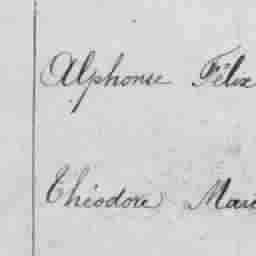 Alphonse Félix
Théodore Mari